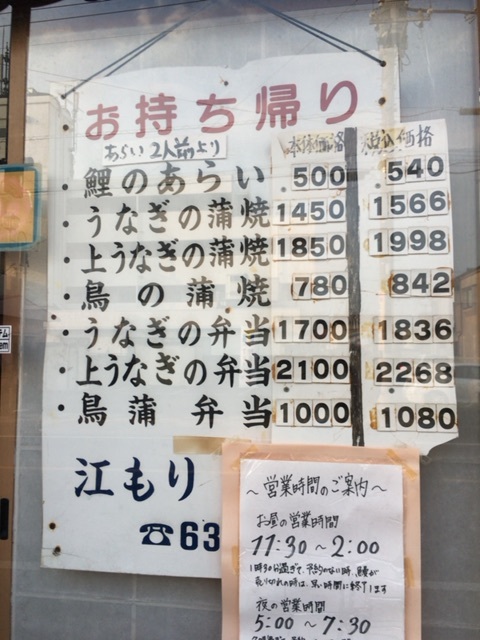 お持ち帰り
あらい2人前より
本体価格 税込価格
・鯉のあらい 500 540
・うなぎの蒲焼 1450 1566
・上うなぎの蒲焼 1850 1998
・鳥の蒲焼 780 842
・うなぎの弁当 1700 1836
・上うなぎの弁当 2100 2268
・鳥蒲弁当 1000 1080
江もり
☎63
～営業時間のご案内～
お昼の営業時間
11:30～2:00
1時30分過ぎて、予約のない時、鰻が
売り切れの時は、早い時間に終了します
夜の営業時間
5:00～7:30